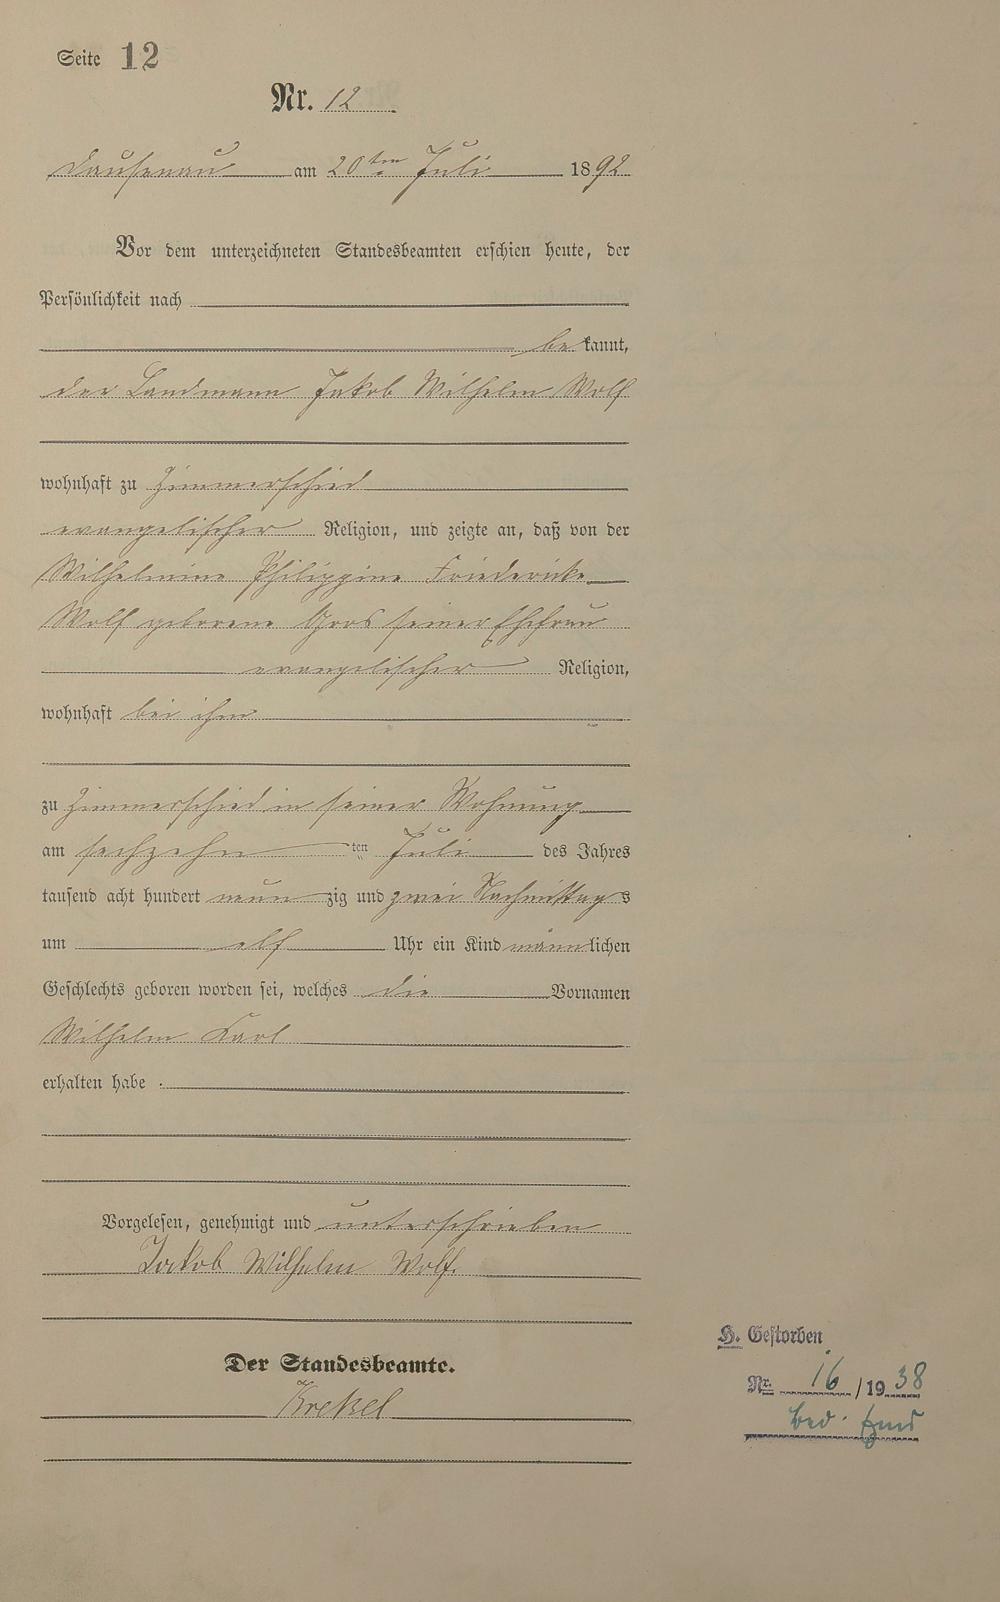 Seite 12
Nr. 12
Dausenau am 20ten Juli 1892
Vor dem unterzeichneten Standesbeamten erschien heute, der
Persönlichkeit nach
bekannt,
der Landmann Jakob Wilhelm Wolf
wohnhaft zu Zimmerschied
evangelischer Religion, und zeigte an, daß von der
Wilhelmine Philippine Friedericke
Wolf geborene Gros seiner Ehefrau
evangelischer Religion,
wohnhaft bei ihm
zu Zimmerschied in seiner Wohnung
am sechzehn ten Juli des Jahres
tausend acht hundert neunzig und zwei Nachmittags
um elf Uhr ein Kind männlichen
Geschlechts geboren worden sei, welches die Vornamen
Wilhelm Karl
erhalten habe.
Vorgelesen, genehmigt und unterschrieben
Jakob Wilhelm Wolf.
Der Standesbeamte.
Krekel
H. Gestorben
Nr. 16/1938
Bad Ems